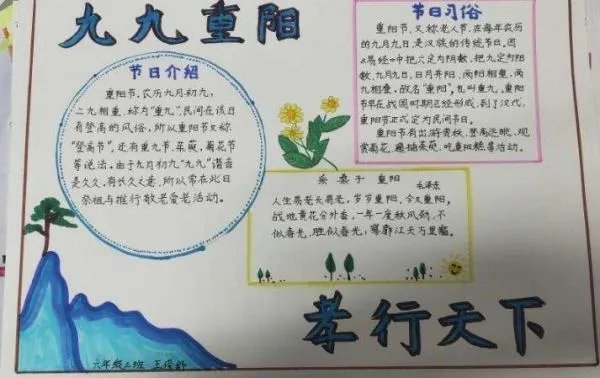 九九重阳
节日介绍
重阳节,农历九月初九,
二九相重,称为"重九",民间在该日
有登高的风俗,所以重阳节又称
"登高节",还有重九节、茱萸、菊花节
等说法,由于九月初九"九九"谐音
是久久,有长久之意,所以常在此日
祭祖与推行敬老爱老活动。
节日习俗
重阳节,又称老人节,在每年农历
的九月九日,是汉族的传统节日。因
《易经》中把六定为阴数,把九定为阳
数,九月九日,日月并阳,两阳相重,两
九相叠,故名"重阳",也叫重九,重阳
节早在战国时期已经形成,到了汉代,
重阳节正式定为民间节日。
重阳节有出游赏秋,登高远眺、观
赏菊花、遍插茱萸、吃重阳糕等活动。
采桑子 重阳
毛泽东
人生易老天难老,岁岁重阳,今又重阳,
战地黄花分外香,一年一度秋风劲,不
似春光,胜似春光,寥廓江天万里霜。
孝行天下
六年级二班 王俊